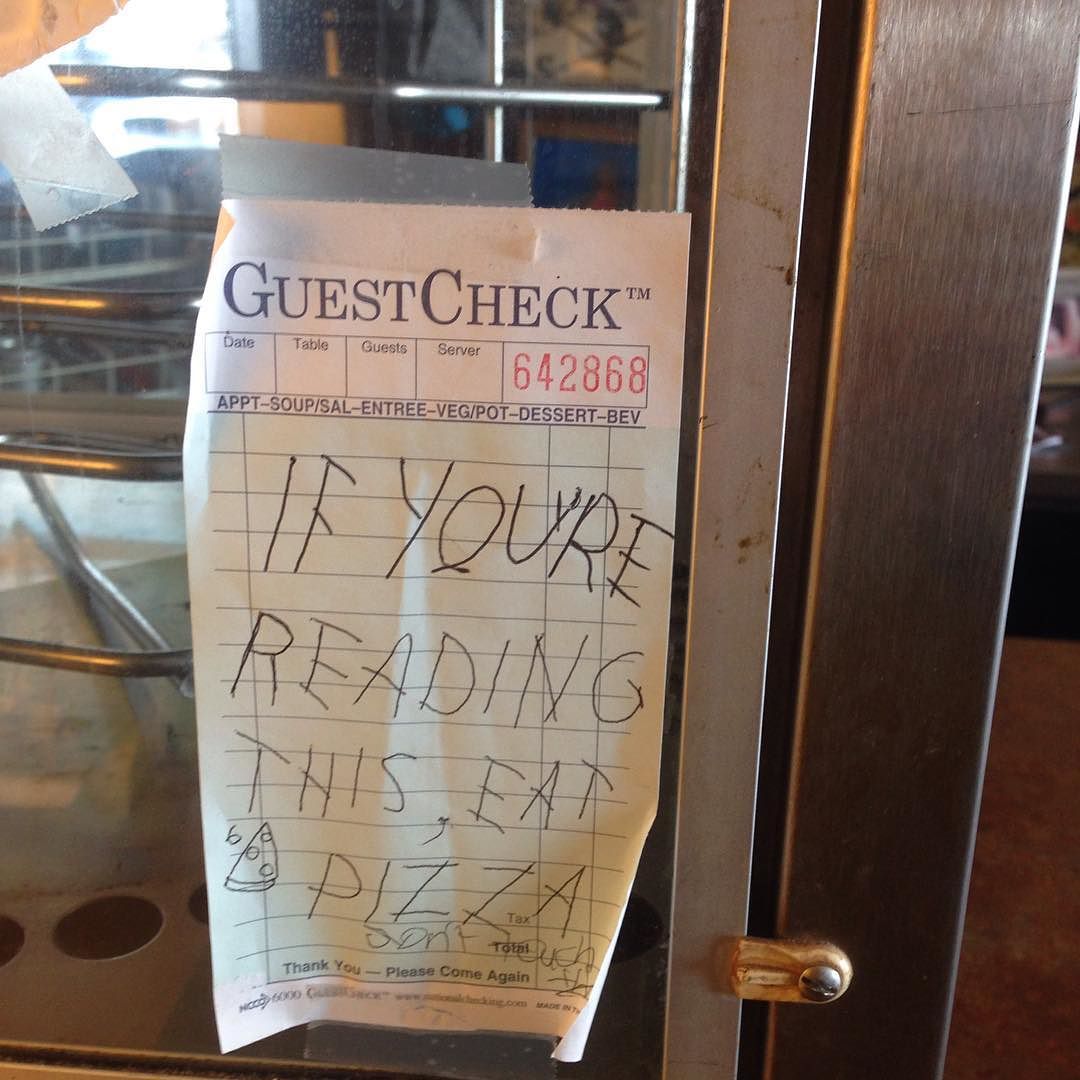 GUESTCHECK™
Date Table Guests Server 642868
APPT–SOUP/SAL–ENTREE–VEG/POT–DESSERT–BEV
IF YOU'RE
READING
THIS, EAT
PIZZA
Tax
DON'T TOUCH
Total
Thank You — Please Come Again
6000 GUESTCHECK™ www.nationalchecking.com MADE IN